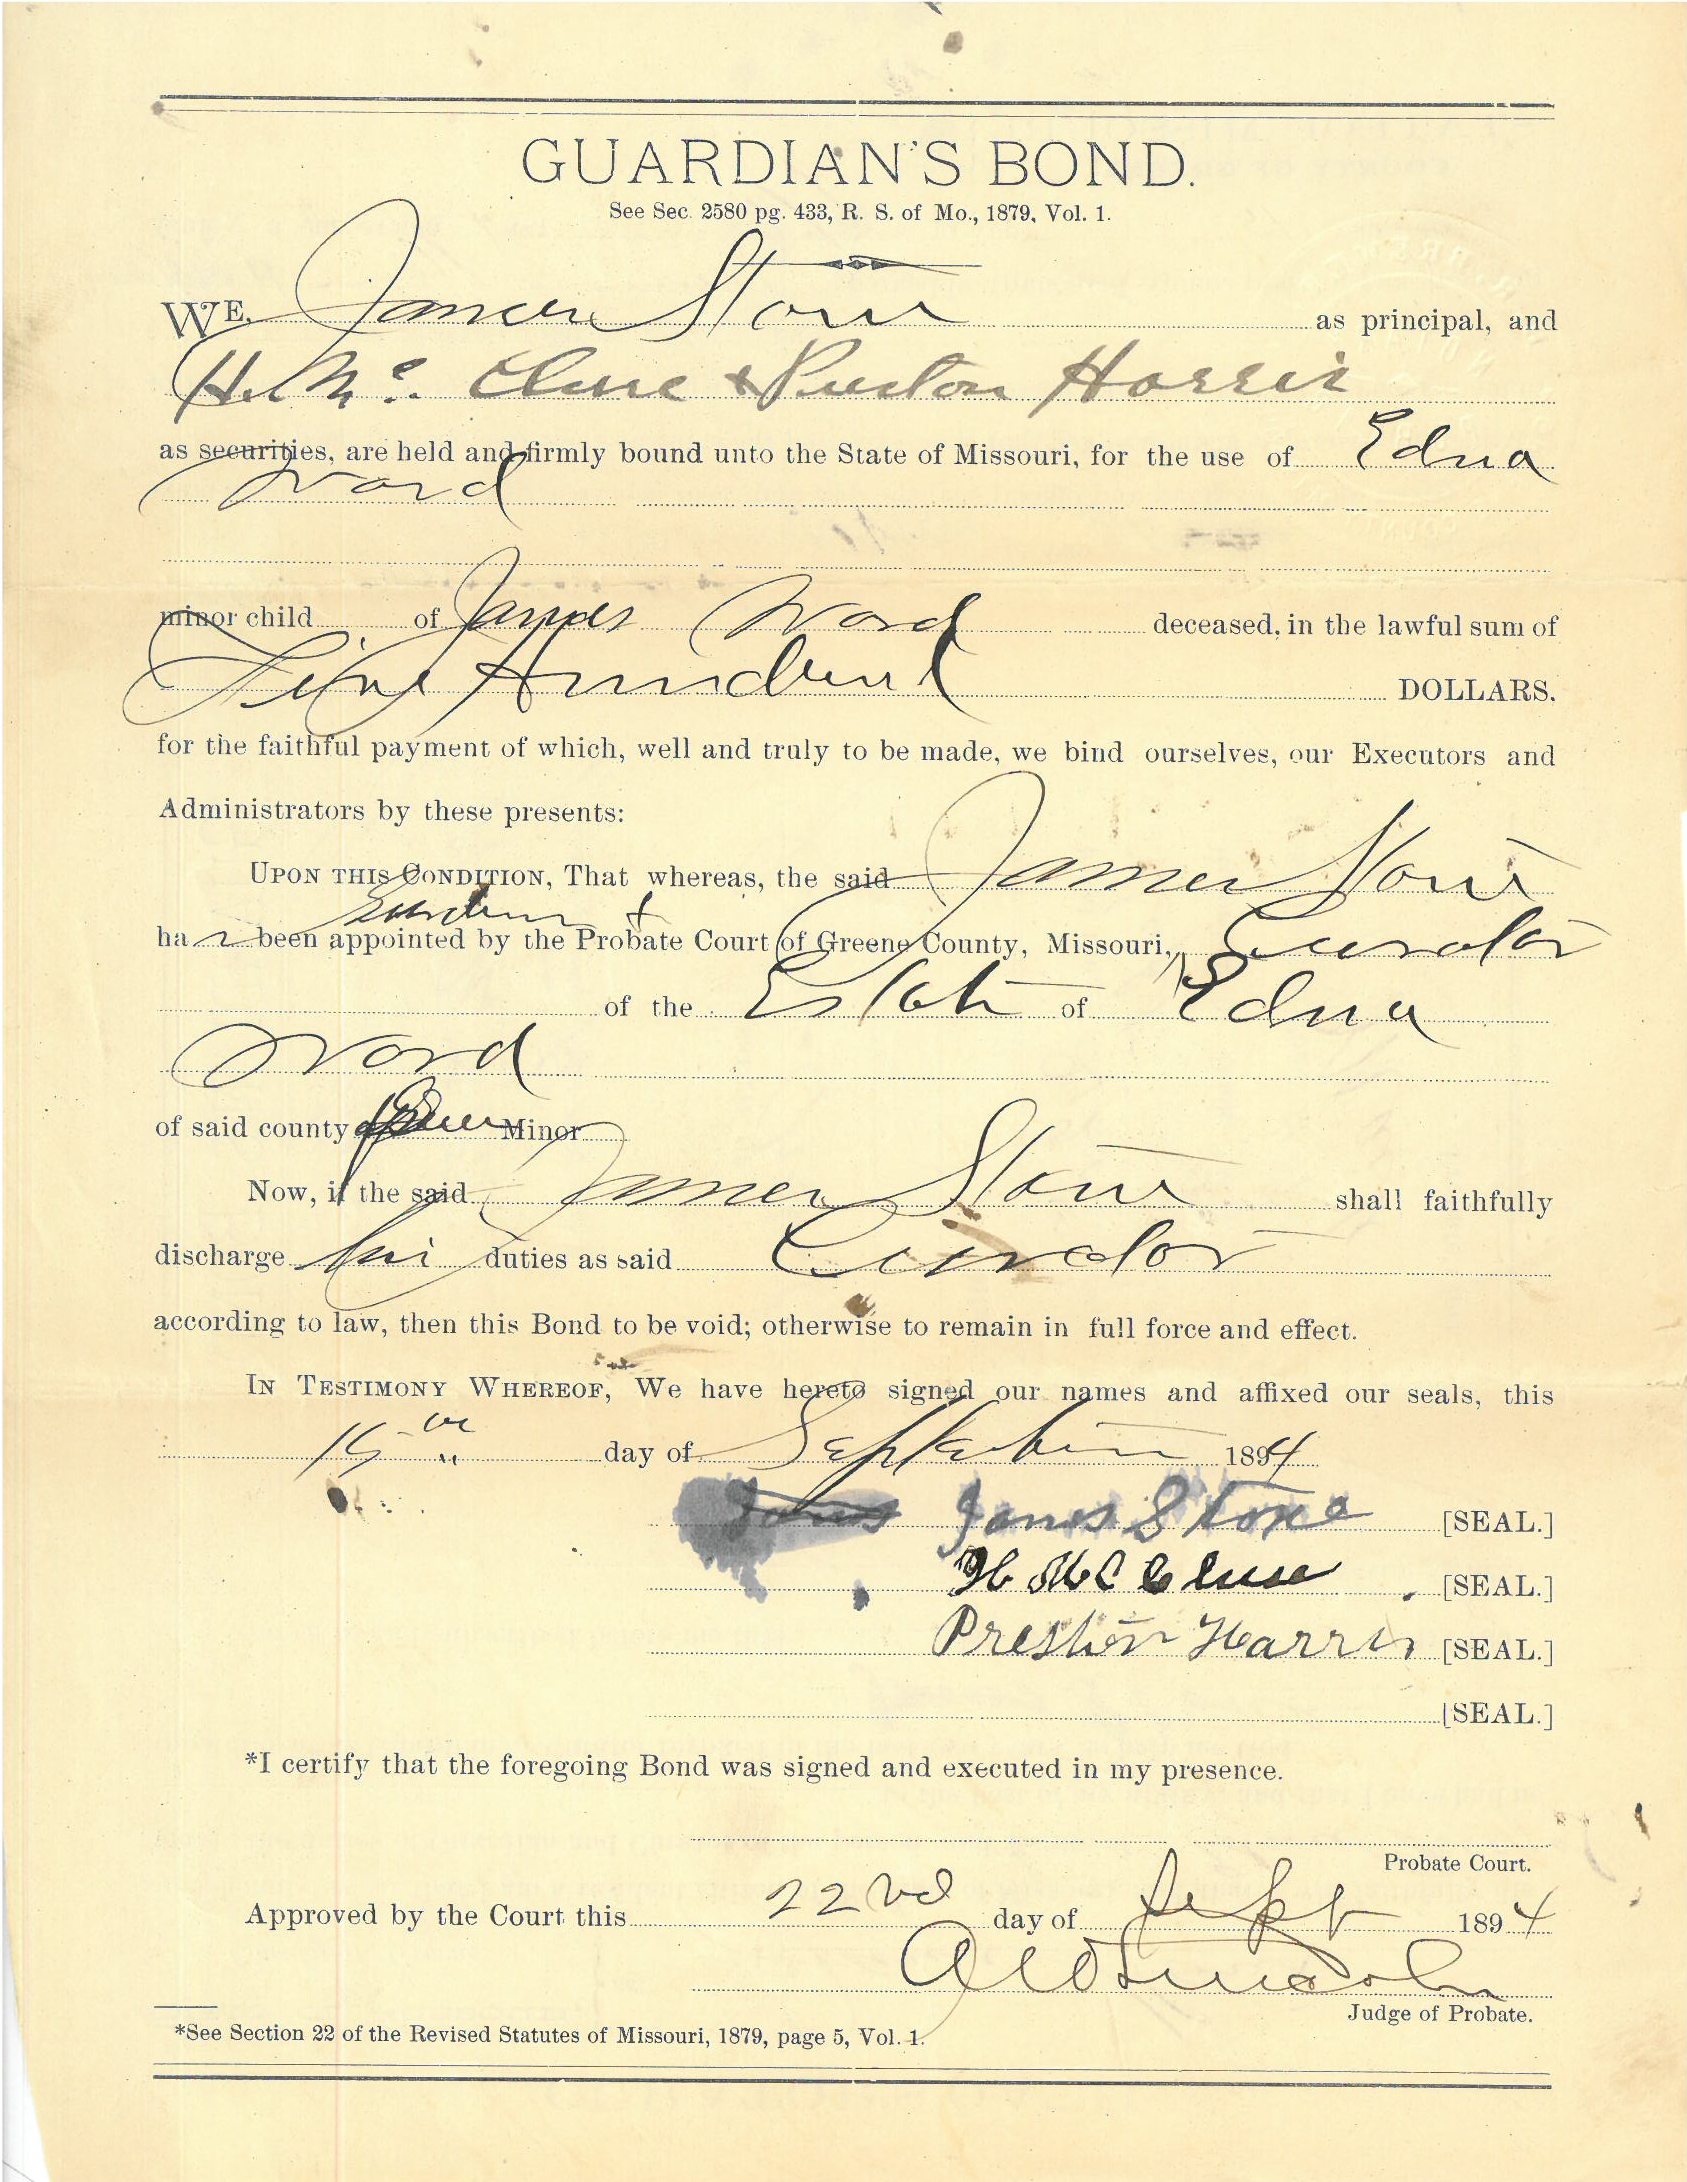 GUARDIAN'S BOND.
See Sec. 2580 pg. 433, R. S. of Mo., 1879, Vol. 1.
WE, James Stone as principal, and
H. Mc. Clure & Preston Harris
as securities, are held and firmly bound unto the State of Missouri, for the use of Edna
Word
minor child of James Word deceased, in the lawful sum of
Five Hundred DOLLARS.
for the faithful payment of which, well and truly to be made, we bind ourselves, our Executors and
Administrators by these presents:
UPON THIS CONDITION, That whereas, the said James Stone
Guardian &
has been appointed by the Probate Court of Greene County, Missouri, Curator
of the Estate of Edna
Word
of said county Minor
Now, if the said James Stone shall faithfully
discharge his duties as said Curator
according to law, then this Bond to be void; otherwise to remain in full force and effect.
IN TESTIMONY WHEREOF, We have hereto signed our names and affixed our seals, this
15 day of September 1894
James James Stone [SEAL.]
H McClure [SEAL.]
Preston Harris [SEAL.]
[SEAL.]
*I certify that the foregoing Bond was signed and executed in my presence.
Probate Court.
Approved by the Court this 22nd day of Sept 1894
Judge of Probate.
*See Section 22 of the Revised Statutes of Missouri, 1879, page 5, Vol. 1.